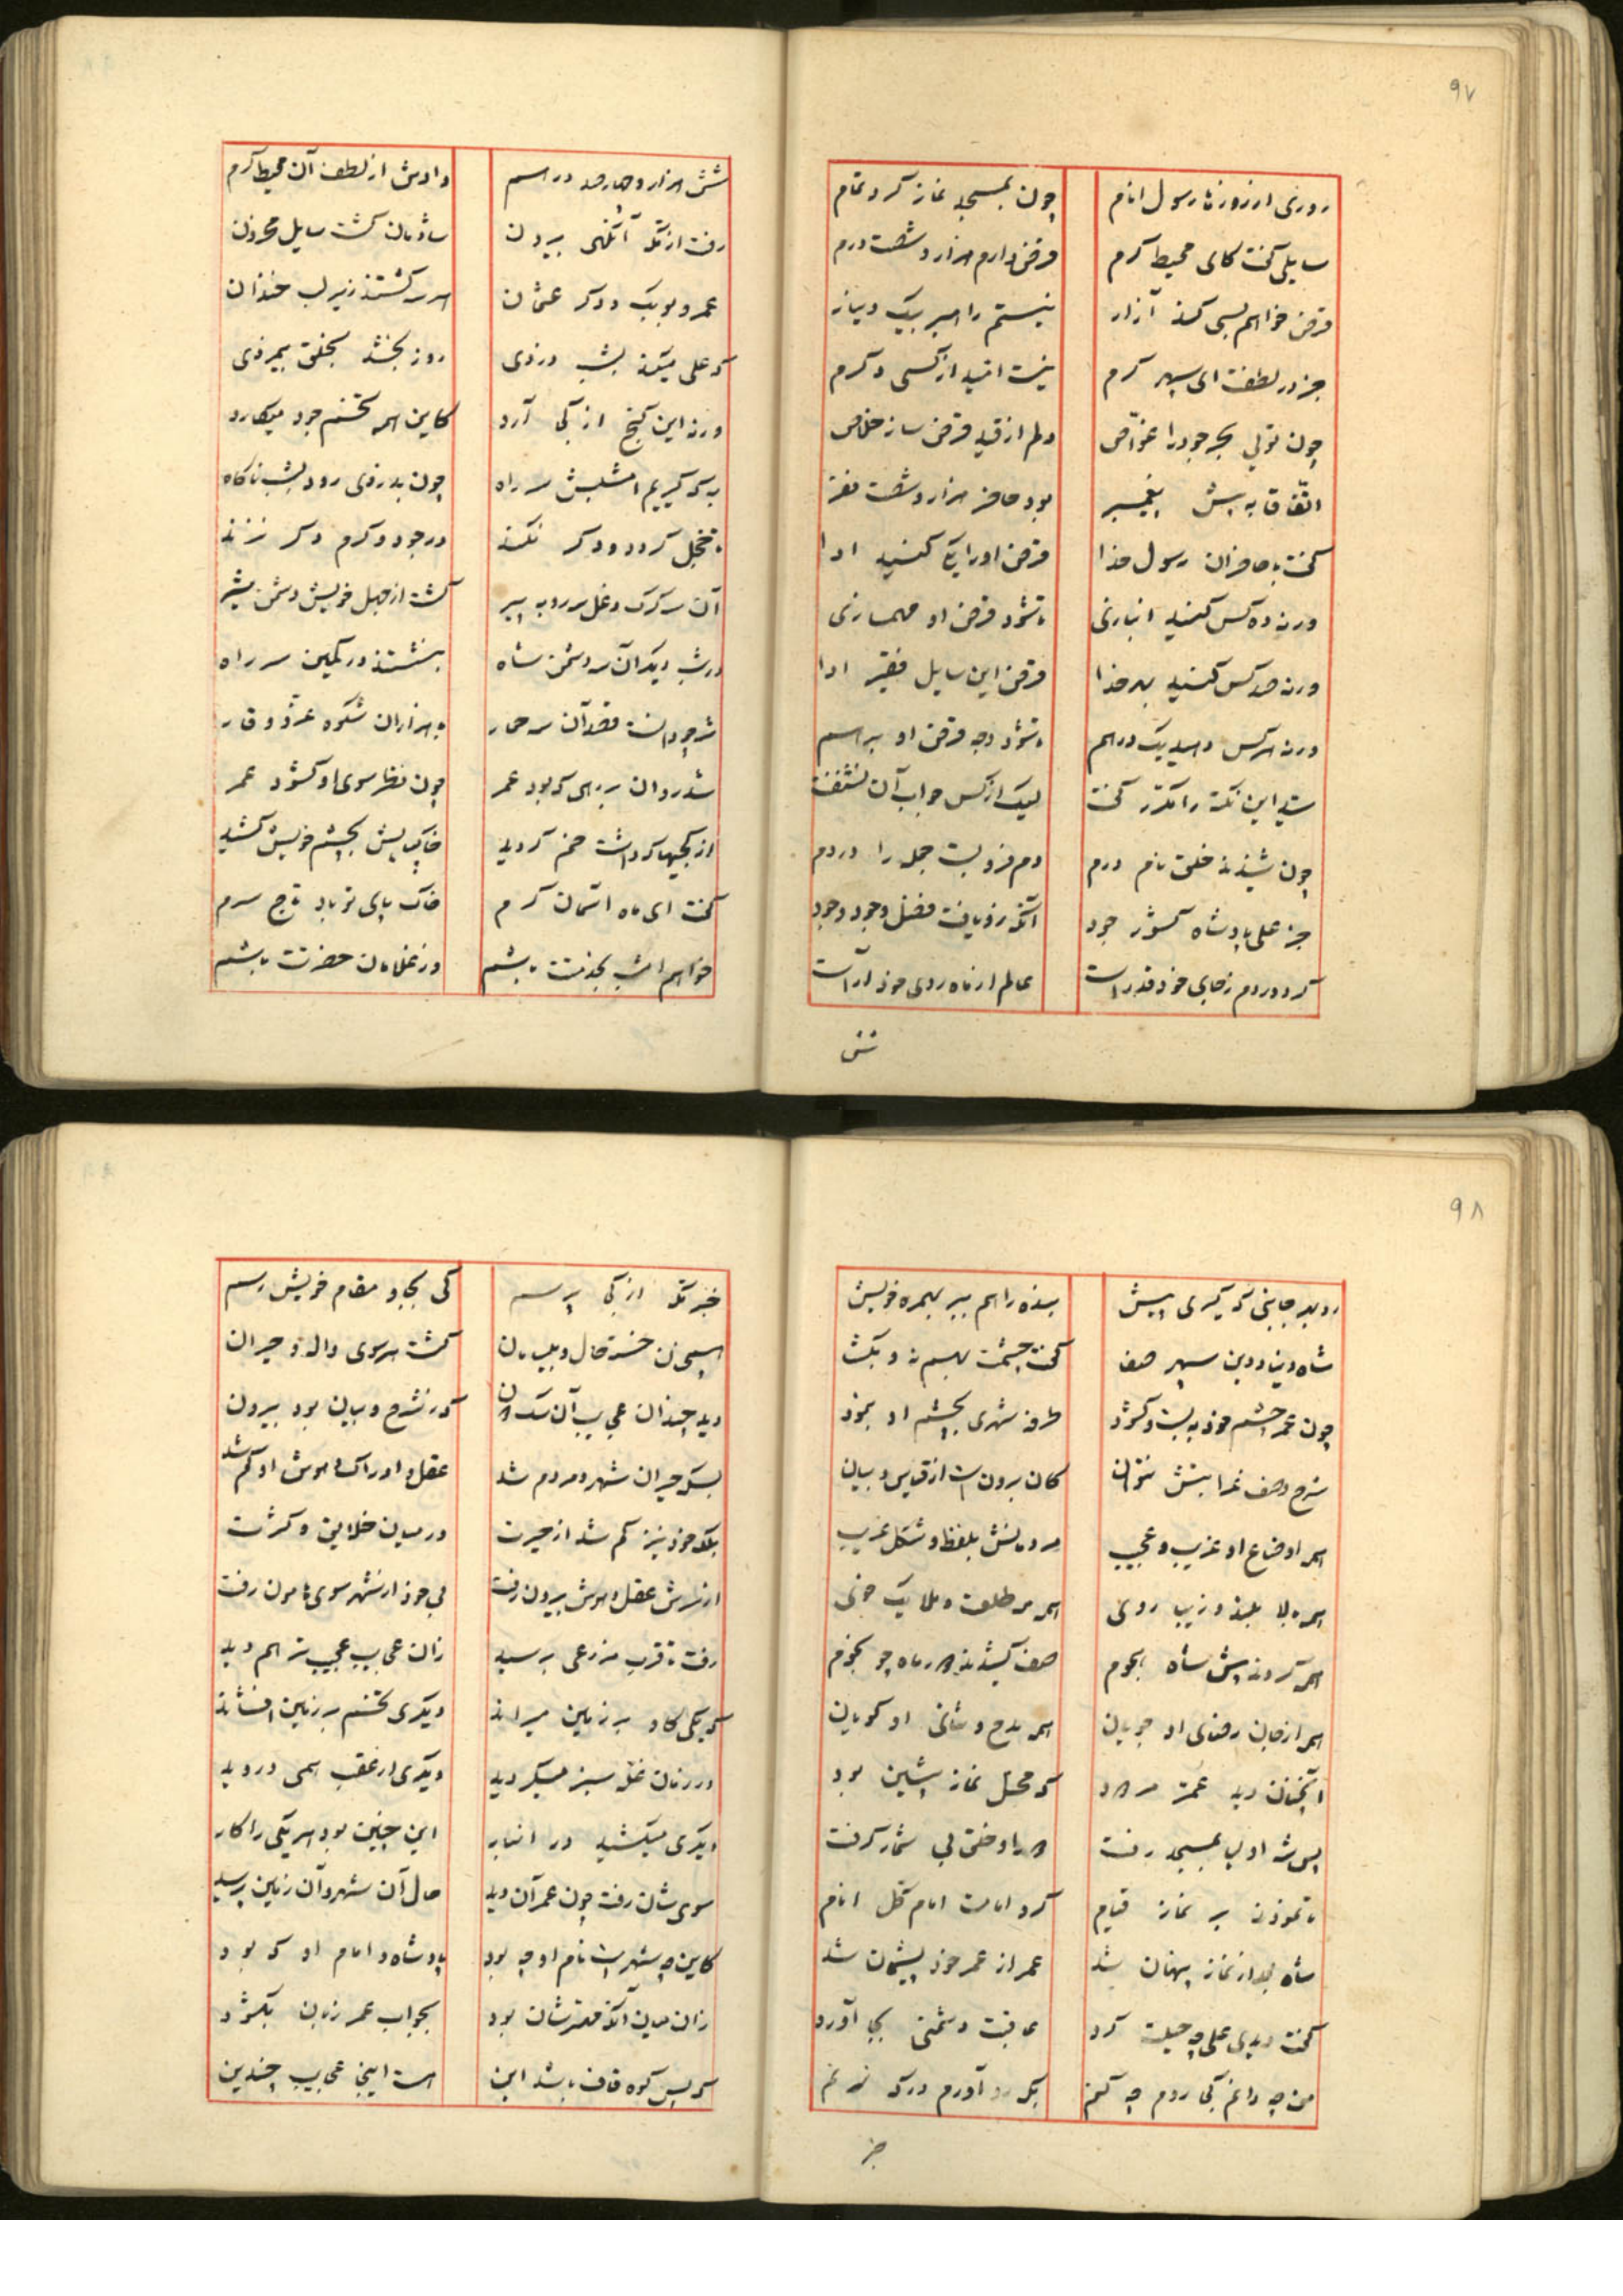 ۹۷
روزی از روزها رسول انام چون بمسجد نماز کرد تمام
سایلی گفت کای محیط کرم قرض دارم هزار و شصت درم
قرض خواهم بسی کند آزار نیستم را صبر بیک دینار
جز در لطفت ای سپهر کرم نیست امید از کسی دکرم
چون تویی بحر جود را غواص دلم از قید قرض ساز خلاص
اتفاقا به پیش پیغمبر بود حاضر هزار و شصت نفر
گفت با حاضران رسول خدا قرض او را یکی کنید ادا
ورنه ده کس کنید انبازی تا شود قرض او مهمسازی
ورنه صد کس کنید بهر خدا قرض این سایل فقیر ادا
ورنه هر کس دهید یک درهم تا شود وجه قرض او برهم
سید این نکته را مکرر گفت لیک از کس جواب آن نشنفت
چون شنیدند خلق نام درم دم فرو بست جمله را در دم
جز علی پادشاه کشور جود آنکه زو یافت فضل و جود وجود
کرد در دم ز جای خود قد راست عالم از ماه روی خود آراست
شش
شش هزار و چهارصد درهم دادش از لطف آن محیط کرم
رفت از مکه آنگهی بیرون شادمان گشت سایل محزون
عمر و بوبک و دکر عثمان هر سه گشتند زیر لب خندان
که علی میکند بشب دزدی روز بخشد بخلق بیمزدی
ورنه این گنج از کجا آرد کاین همه تخم جود میکارد
به که گیریم امشبش سر راه چون بدزدی رود بشب ناکاه
تا خجل گردد و دکر نکند در جود و کرم دکر نزند
آن سه گرک دغل سه روبه پیر گشت از جهل خویش دشمن شیر
در شب دیگر آن سه دشمن شاه بنشستند در کمین سر راه
شه چو دانست قصد آن سه حمار با هزاران شکوه عز و وقار
شد روان بر رهی که بود عمر چون نظر سوی او کشود عمر
از کجیها که داشت خم گردید خاک پایش بچشم خویش کشید
گفت ای ماه آسمان کرم خاک پای تو باد تاج سرم
خواهم امشب بخدمتت باشم وز غلامان حضرتت باشم
۹۸
رو بهر جانبی که گیری پیش بنده را هم ببر بهمره خویش
شاه دنیا و دین سپهر صفا گفت چشمت بهم نه و بکشا
چون عمر چشم خود به بست و کشود طرفه شهری بچشم او بنمود
شرح وصف غرابتش نتوان کان برونست از قیاس و بیان
همه اوضاع او غریب و عجیب مردمانش بلفظ و شکل غریب
همه بالا بلند و زیبا روی همه مه طلعت و ملایک خوی
همه کردند پیش شاه هجوم صف کشیدند گرد ماه چو نجوم
همه از جان رضای او جویان همه مدح و ثنای او گویان
آنچنان دید عمر مردود که محل نماز پیشین بود
پس شه اولیا بمسجد رفت گرد او خلق بی شمار گرفت
تا نمودند بر نماز قیام کرد امامت امام کل انام
شاه بعد از نماز پنهان شد عمر از عمر خود پشیمان شد
گفت دیدی علی چه حیلت کرد عاقبت دشمنی بجا آورد
من چه دانم کجا روم چه کنم بکه رو آورم در که زنم
خبر
خبر مکه از کجا پرسم کی بجا و مقام خویش رسم
همچنان خسته حال و بیسامان گشت هر سوی واله و حیران
دید چندان عجایب آن سکدون که ز شرح و بیان بود بیرون
بسکه حیران شهر و مردم شد عقل و ادراک و هوش او گم شد
بلکه خود نیز گم شد از حیرت در میان خلایق و کثرت
از سرش عقل و هوش بیرون رفت بی خود از شهر سوی هامون رفت
رفت تا قرب مزرعی برسید زان عجایب عجیب تر هم دید
که یکی گاو بر زمین میراند دیگری تخم بر زمین افشاند
در زمان غله سبز میگردید دیگری از عقب همی دروید
دیگری میکشید در انبار این چنین بود هر یکی را کار
سوی شان رفت چون عمر آن دید حال آن شهر و آن زمین پرسید
کاین چه شهرست نام او چه بود پادشاه و امام او که بود
زان میان آنکه مهترشان بود بجواب عمر زبان بکشود
که پس کوه قاف باشد این هست اینجا عجایب چندین